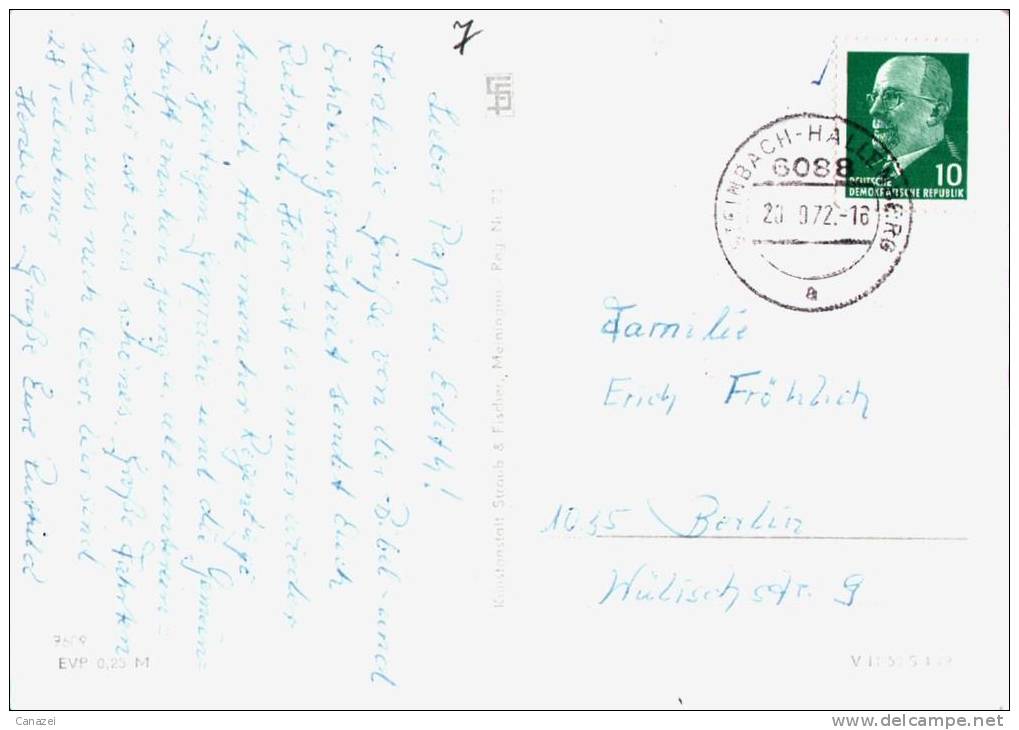 7
Lieber Papa u. Edith!
Herzliche Grüße von der Bibel- und
Erholungsrüstzeit sendet Euch
Ruthild. Hier ist es immer wieder
herrlich trotz mancher Regentage
Die geistigen Gespräche und die Gemein=
schaft zwischen jung u. alt unterein=
ander ist zum schönes. Große Fahrten
stehen uns noch bevor. Wir sind
28 Teilnehmer
Herzliche Grüße Eure Ruthild
7609
EVP 0,25 M
Kunstanstalt Straub & Fischer, Meiningen
STEINBACH-HALLENBERG
6088
20 972.-16
a
10
DEUTSCHE
DEMOKRATISCHE REPUBLIK
Familie
Erich Fröhlich
1035 Berlin
Wülischstr. 9
Canazei
http://www.delcampe.net